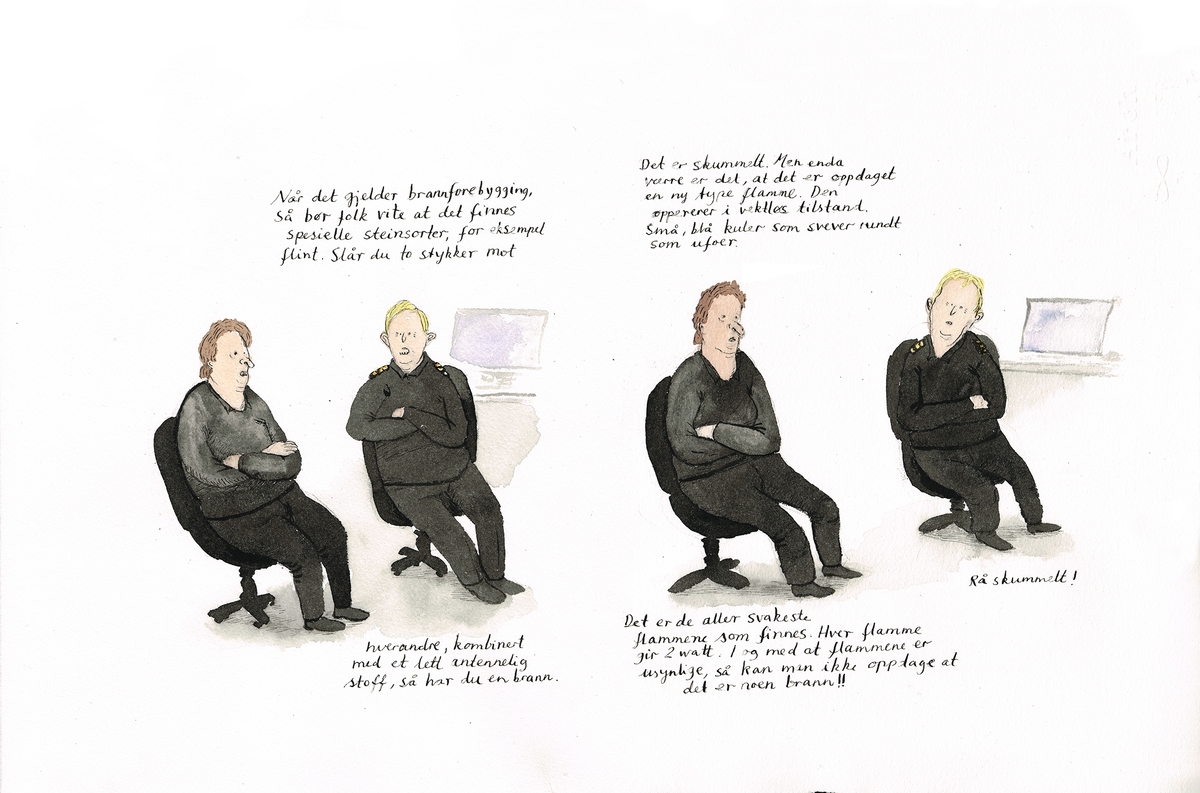 Når det gjelder brannforebygging,
så bør folk vite at det finnes
spesielle steinsorter, for eksempel
flint. Slår du to stykker mot
hverandre, kombinert
med et lett antennelig
stoff, så har du en brann.
Det er skummelt. Men enda
værre er det, at det er oppdaget
en ny type flamme. Den
oppererer i vektløs tilstand.
Små, blå kuler som svever rundt
som ufoer.
Rå skummelt!
Det er de aller svakeste
flammene som finnes. Hver flamme
gir 2 watt. I og med at flammene er
usynlige, så kan man ikke oppdage at
det er noen brann!!